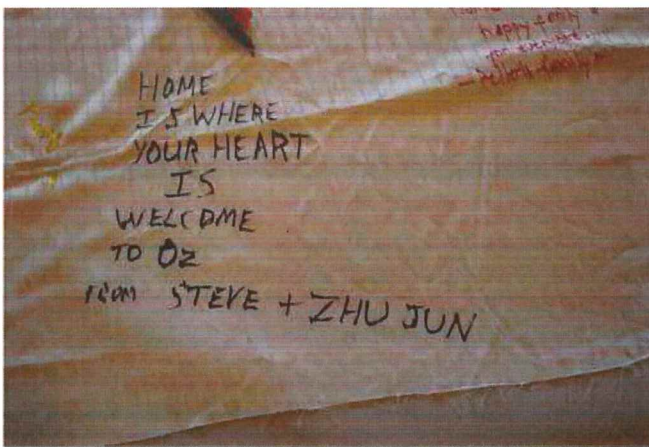 happy family
HOME
IS WHERE
YOUR HEART
IS
WELCOME
TO Oz
FROM STEVE + ZHU JUN